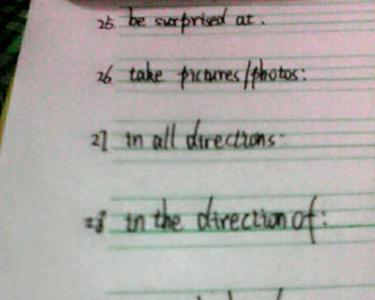 25. be surprised at.
26. take pictures/photos:
27 in all directions
28 in the direction of: